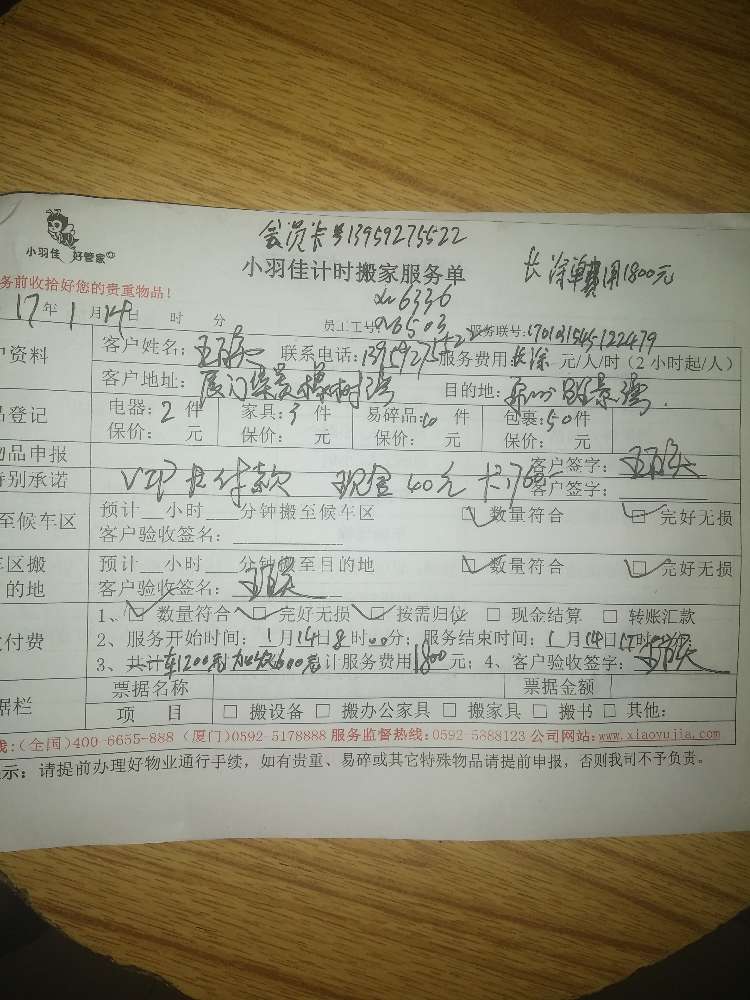 会员卡号13959275522
小羽佳 好管家
小羽佳计时搬家服务单
长途单费用1800元
务前收拾好您的贵重物品！
6336
17年1月14日 时 分
员工工号: 6503 服务联号:
资料
客户姓名： 联系电话：13959275522 服务费用 长途 元/人/时（2小时起/人）
客户地址：厦门集美 目的地：
登记
电器：2件 家具：3件 易碎品： 件 包裹：50件
保价： 元 保价： 元 保价： 元 保价： 元
物品申报
客户签字：
特别承诺
VIP卡付款 现金40元 卡1760
客户签字：
至候车区
预计__小时__分钟搬至候车区 □ 数量符合 □ 完好无损
客户验收签名：
车区搬
的地
预计__小时__分钟搬至目的地 □ 数量符合 □ 完好无损
客户验收签名：
付费
1、□ 数量符合 □ 完好无损 □ 按需归位 □ 现金结算 □ 转账汇款
2、服务开始时间：1月14日8时00分；服务结束时间：1月14日17时 分
3、共计车1200元 600元 计服务费用1800元；4、客户验收签字：
据栏
票据名称 票据金额
项 目 □ 搬设备 □ 搬办公家具 □ 搬家具 □ 搬书 □ 其他:
线：(全国)400-6655-888 (厦门)0592-5178888 服务监督热线：0592-5888123 公司网站：www.xiaoyujia.com
示：请提前办理好物业通行手续，如有贵重、易碎或其它特殊物品请提前申报，否则我司不予负责。